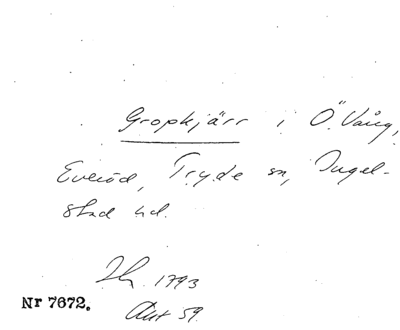 Gropkjärr i Ö. Vång,
Everöd, Tryde sn, Ingel-
stad hd.
1793
Nr 7672.
Akt 59.